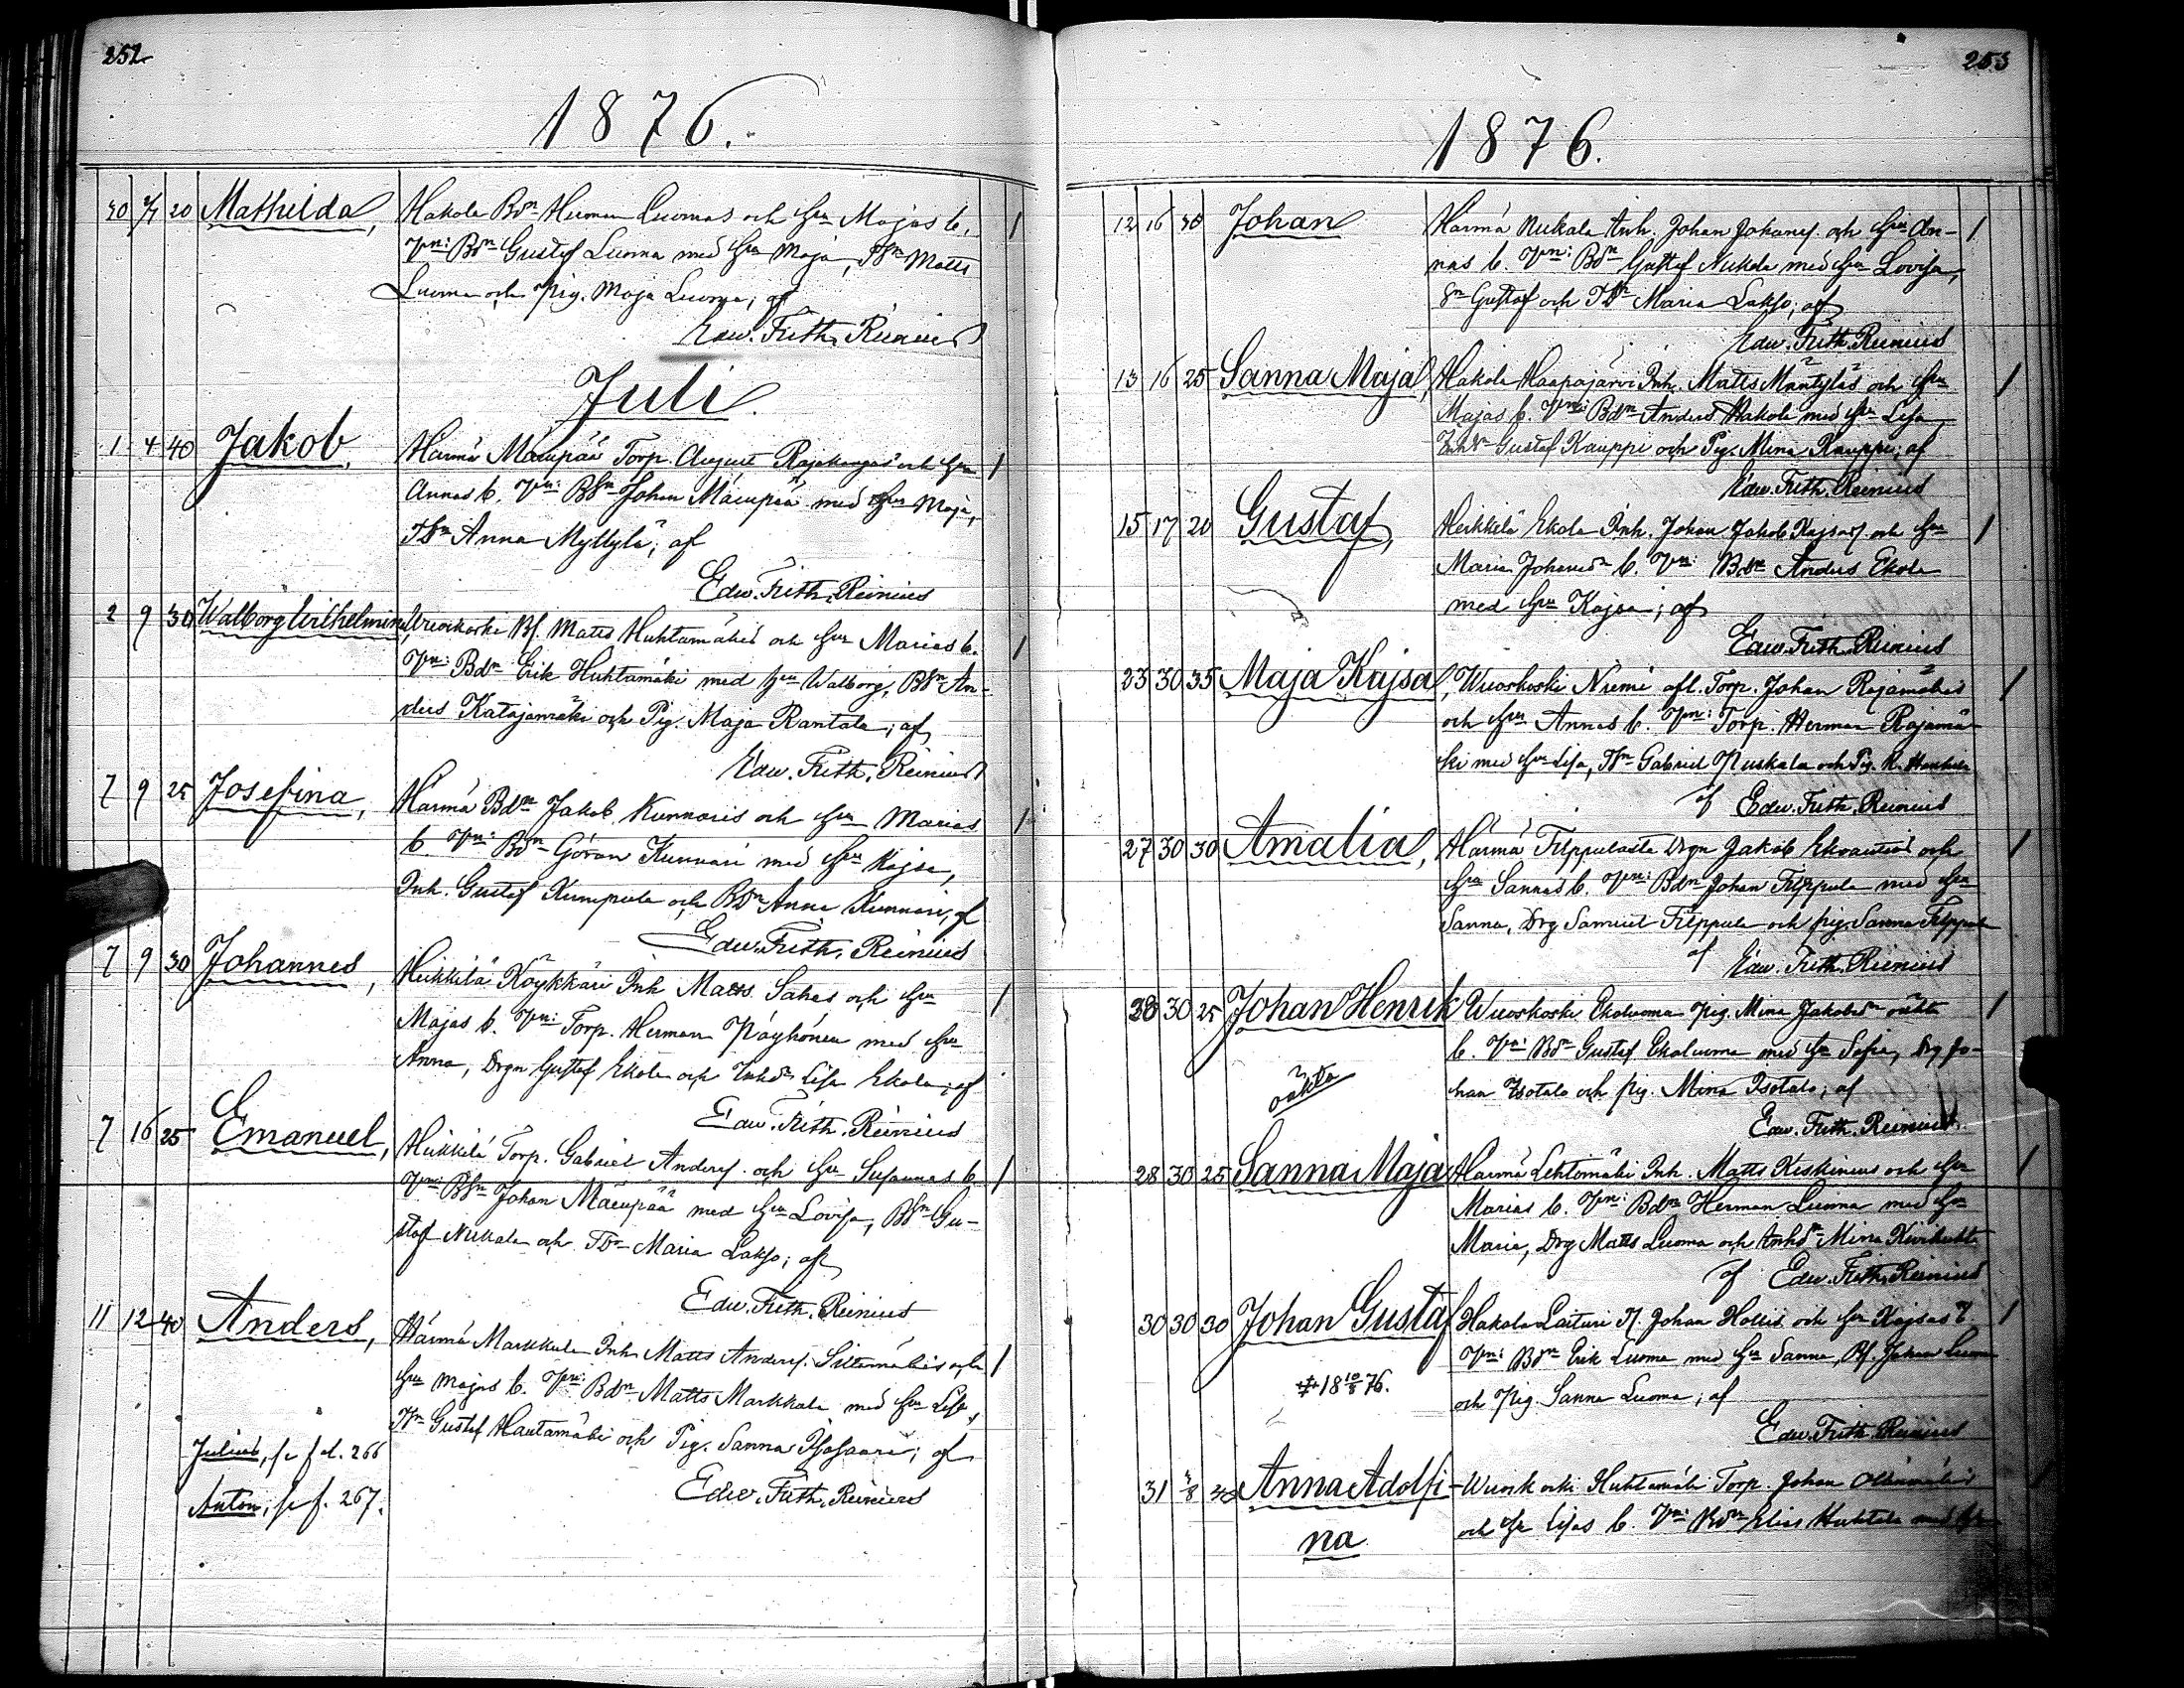 252
1876.
30 2/7 20 Mathilda, Hakola Bdn Herman Luomas och hu Majas b,
Vn: Bdn Gustaf Luoma med hu Maja, Tsn Matts
Luoma och Pig. Maja Luoma; af
Edw. Frith. Reinius
Juli.
1 4 40 Jakob, Härmä Mäenpää Torp. August Rajakangas och hu
Annas b, Vn: Bdn Johan Mäenpää med hu Maja,
Anna Myllylä; af
Edw. Frith. Reinius
2 9 30 Walborg Wilhelmina, Wuoskoski Bs. Matts Huhtamäkis och hu Marias b.
Vn: Bdn Erik Huhtamäki med hu Walborg, Bsn An-
ders Katajamäki och Pig. Maja Rantala; af
Edw. Frith. Reinius
7 9 25 Josefina, Härmä Bdn Jakob Kunnaris och hu Marias
b Vn: Bdn Göran Kunnari med hu Kajsa,
Inh. Gustaf Kumpula och Bdr Anna Kunnari; af
Edw. Frith. Reinius
7 9 30 Johannes, Heikkilä Köykkäri Inh Matts Sahas och hu
Majas b. Vn: Torp. Herman Pöyhönen med hu
Anna, Drgn Gustaf Ekola och Inhdr Lisa Ekola; af
Edw. Frith. Reinius
7 16 25 Emanuel, Heikkilä Torp. Gabriel Anders. och hu Susannas b
Vn: Bsn Johan Mäenpää med hu Lovisa, Bsn Gu-
staf Nukala och Tdr Maria Lakso; af
Edw. Frith. Reinius
11 12 40 Anders, Härmä Markkula Inh Matts Anders. Siltamäkis och
hu Majas b. Vn: Bdn Matts Markkala med hu Lisa,
Tsn Gustaf Hautamäki och Pig. Sanna Isosaari; af
Edw. Frith. Reinius
Julius, se f d. 266
Anton, se f. 267.
253
1876.
12 16 30 Johan Härmä Nukala Inh. Johan Johans. och hu An-
nas b. Vn: Bdn Gustaf Nukala med hu Lovisa,
Gustaf och Tdr Maria Lakso; af
Edw. Frith. Reinius
13 16 25 Sanna Maja, Hakola Haapajärvi Inh. Matts Mäntyläs och hu
Majas b. Vn: Bdn Anders Hakola med hu Lisa,
Gustaf Kauppi och Pig. Mina Kauppi; af
Edw. Frith. Reinius
15 17 20 Gustaf, Heikkilä Ekola Inh. Johan Jakob Kajsas. och hu
Maria Johansdr b. Vn: Bdn Anders Ekola
med hu Kajsa; af
Edw. Frith. Reinius
23 30 35 Maja Kajsa, Wuoskoski Niemi afl. Torp. Johan Rajamäkis
och hu Annas b. Vn: Torp. Herman Rajamä-
ki med hu Lisa, Tsn Gabriel Puskala och Pig. K.
af Edw. Frith. Reinius
27 30 30 Amalia, Härmä Filppulasta Drgn Jakob och
hu Sannas b. Vn: Bdn Johan Filppula med hu
Sanna, Drg Samuel Filppula och pig. Sanna Filppula
af Edw. Frith. Reinius
28 30 25 Johan Henrik Wuoskoski Ekoluoma pig. Mina Jakobsdr oäkta
b. Vn: Bdn Gustaf Ekoluoma med hu Sofia, Drg Jo-
oäkta
han Isotalo och pig. Mina Isotalo; af
Edw. Frith. Reinius.
28 30 25 Sanna Maja Härmä Lehtomäki Inh. Matts Keskinens och hu
Marias b. Vn: Bdn Herman Luoma med hu
Maria, Drg Matts Luoma och Inhdr Mina
af Edw. Frith. Reinius
30 30 30 Johan Gustaf Hakola Laituri Johan Hollis och hu Kajsas b
Vn: Bdn Erik Luoma med hu Sanna, Bs. Johan Luoma
‡ 18 10/8 76.
och Pig Sanna Luoma; af
Edw. Frith. Reinius
31 Anna Adolfi- Wuoskoski Huhtamäki Torp. Johan
och hu Lisas b. Vn: Bdn Elias Huhtala med hu
na